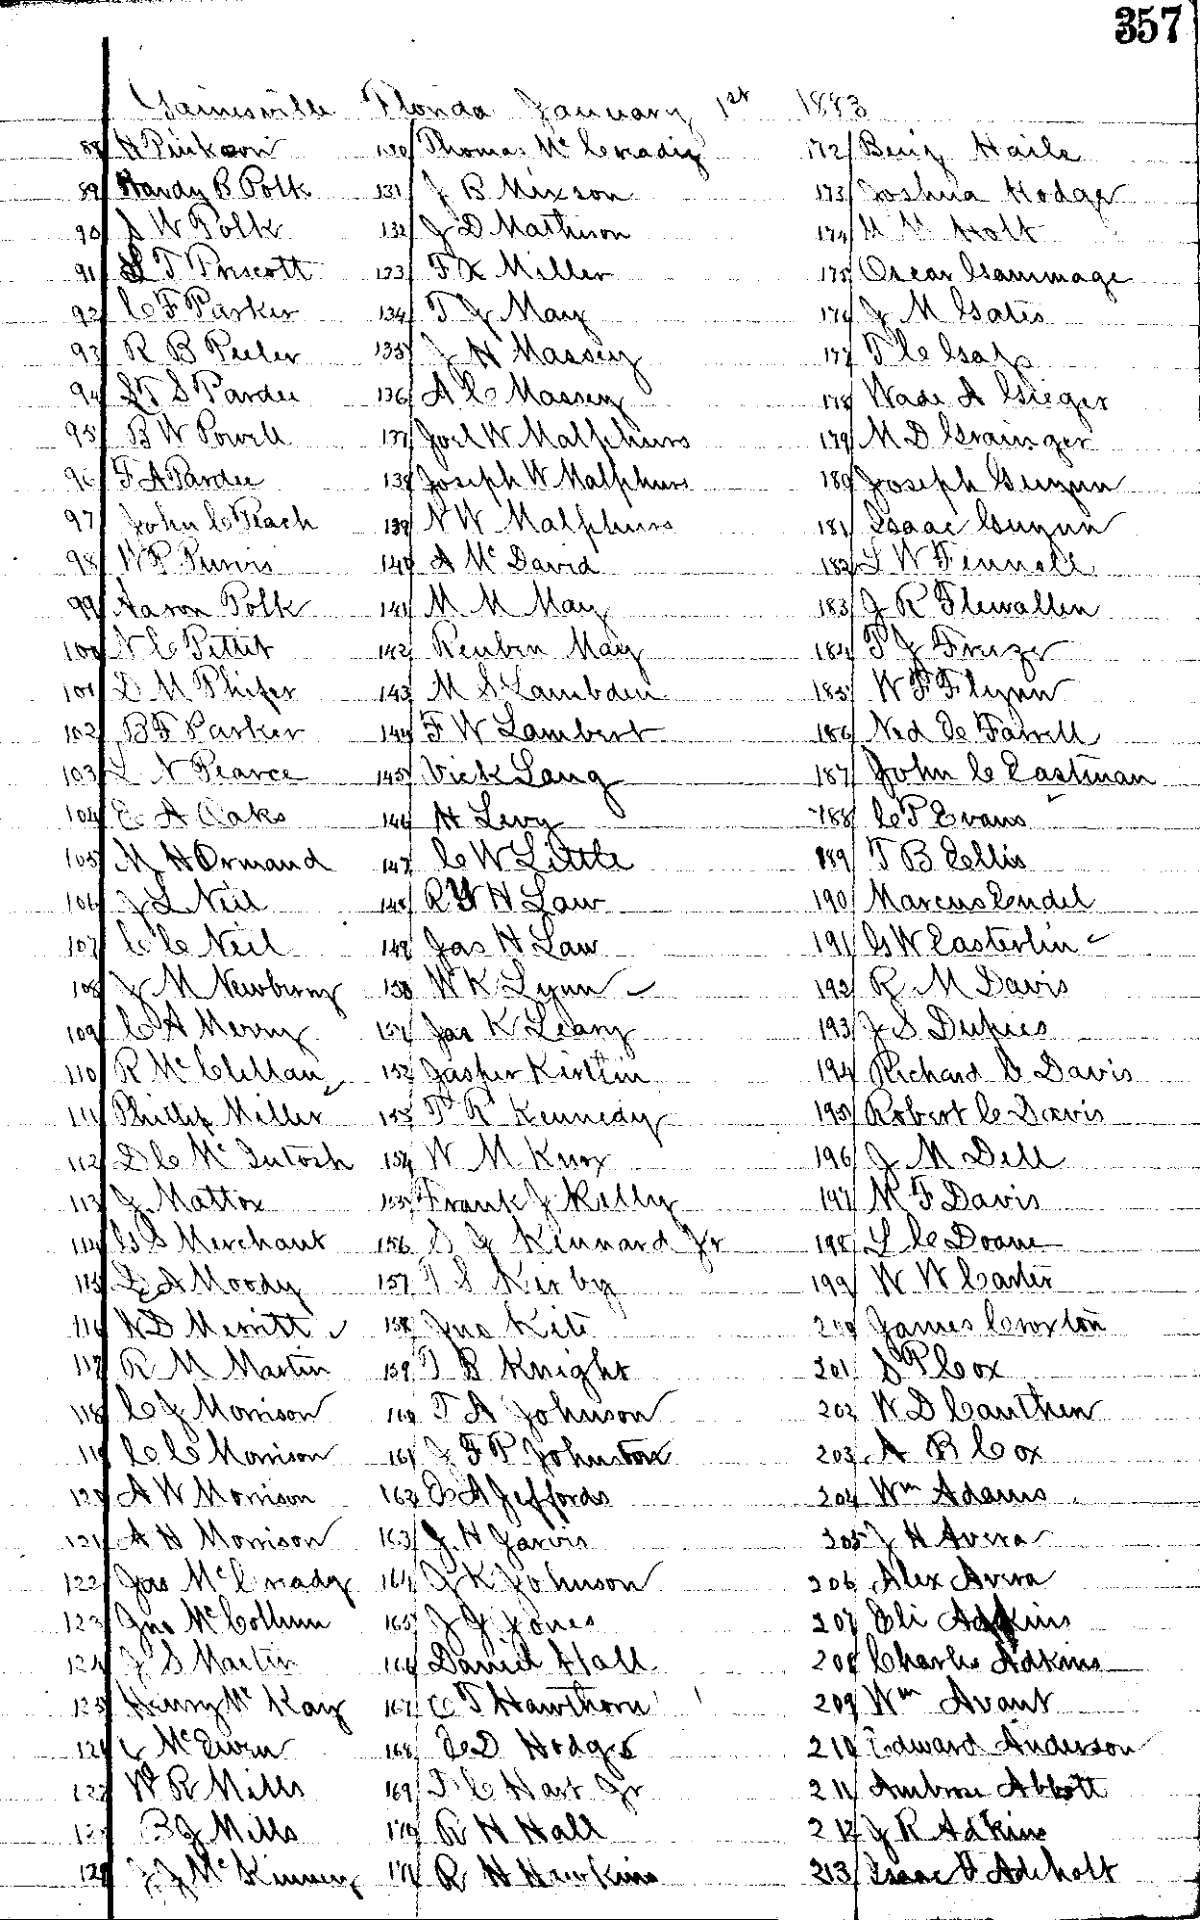 357
Gainesville Florida January 1st 1883
88 H
89 Handy B Polk
90 S W Polk
91 S T Prescott
92 C F Parker
93 R B Peeler
94 S T S Pardee
95 B W Powell
96 F A Pardee
97 John C Peach
98 W P Purvis
99 Aaron Polk
100 N C Pettit
101 D M Phifer
102 B F Parker
103 L N Pearce
104 E A Oaks
105 M H Ormand
106 J L Neil
107 C C Neil
108 J M Newberry
109 C A Merry
110 R McClellan
111 Phillip Miller
112 D C McIntosh
113 J Mattox
114 G S Merchant
115 L A Moody
116 W D Merritt
117 R M Martin
118 C J Morrison
119 C C Morrison
120 A W Morrison
121 A H Morrison
122 Jas McCready
123 Jno McCollum
124 J S Martin
125 Henry McKay
126 McEwen
127 W R Mills
128 B J Mills
129 J J McKinney
130 Thomas McCreadig
131 J B Mixson
132 J D Matheson
133 F X Miller
134 T J May
135 J H Massey
136 A C Massey
137 Joel W Malphurs
138 Joseph W Malphurs
139 N W Malphurs
140 A McDavid
141 M M May
142 Reuben May
143 M S Lambden
144 F W Lambert
145 Vick Lang
146 H Levy
147 C W Little
148 R W H Law
149 Jas H Law
150 W K Lynn
151 Jas K Leary
152 Jasper Kirtlin
153 T R Kennedy
154 W M Knox
155 Frank J Kelly
156 S J Kennard Jr
157 T S Kirby
158 Jno Kite
159 T B Knight
160 T A Johnson
161 J F P Johnston
162 E A Jeffords
163 J. H Jarvis
164 J K Johnson
165 J J Jones
166 Daniel Hall
167 C T Hawthorn
168 E D Hodges
169 T C Hart Jr
170 R H Hall
171 R H Hawkins
172 Benj Haile
173 Joshua Hodge
174 Holt
175 Oscar Gammage
176 J M Gates
177 T C
178 Wade A Gieger
179 M D Grainger
180 Joseph Guynn
181 Isaac Guynn
182 L W Fennell
183 J R Flewallen
184 P J Frezer
185 W F Flynn
186 Ned De Farrell
187 John C Eastman
188 C P Evans
189 T B Ellis
190 Marcus Endel
191 G W Easterlin
192 R M Davis
193 J S Dupies
194 Richard C Davis
195 Robert C Davis
196 J M Dell
197 M F Davis
198 L C Doane
199 W W Carter
200 James Croxton
201 S P Cox
202 W D Cauthen
203 A B Cox
204 Wm Adams
205 J H Avera
206 Alex Avera
207 Eli Adkins
208 Charlie Adkins
209 Wm Avant
210 Edward Anderson
211 Ambrose Abbott
212 J R Adkins
213 Isaac Aderholt